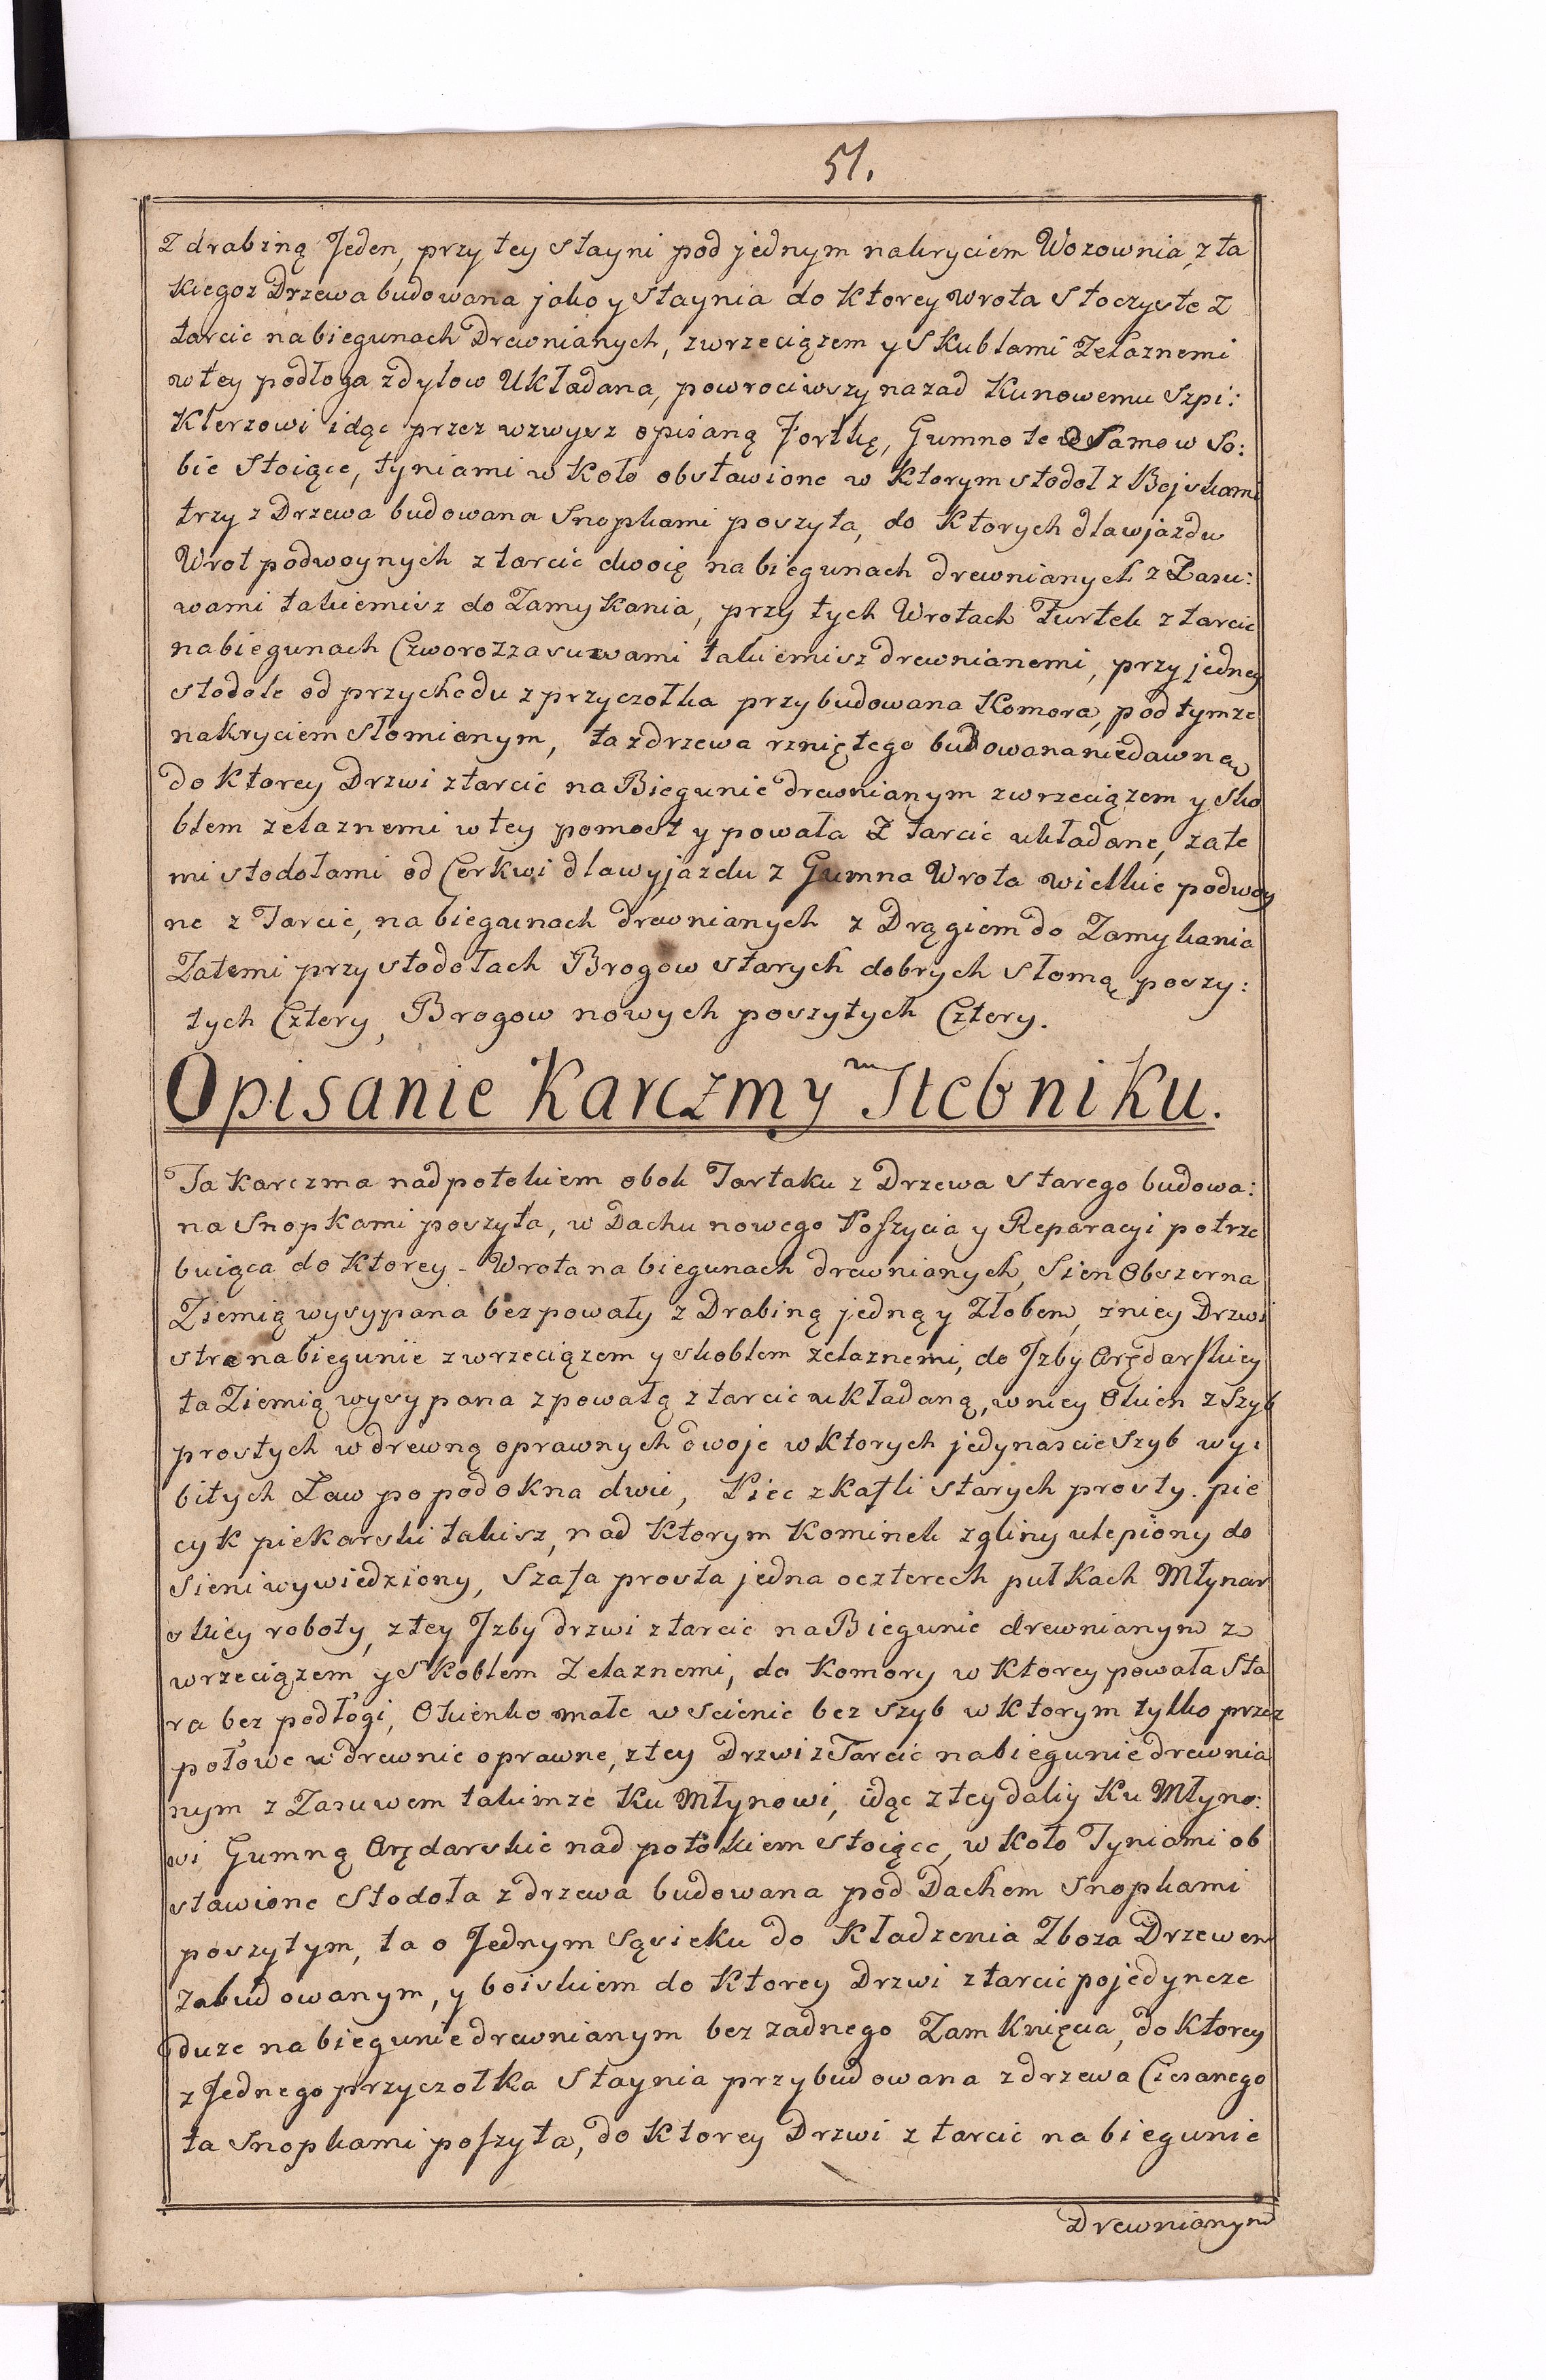 51.
Z drabiną Jeden, przy tey stayni pod jednym nakryciem Wozownia, z ta
kiegoz Drzewa budowana jako y staynia do Ktorey Wrota stoczyste Z
tarcic na biegunach Drewnianych, z wrzeciązem y Skublami Zelaznemi
w tey podłoga z dylow Układana, powrociwszy nazad Ku nowemu Szpi:
Klerzowi idąc przez wzwysz opisaną Fortkę, Gumno te Samo w So:
bie Stoiące, tyniami w Koło obstawione w Ktorym stodoł z Bojskami
trzy z Drzewa budowana Snopkami poszyta, do Ktorych dla wjazdu
Wrot podwoynych z tarcic dwoię na biegunach drewnianych z Zasu:
wami takiemisz do Zamykania, przy tych Wrotach Furtek z tarcic
na biegunach Czworo z zasuwami takiemisz drewnianemi, przy jedney
stodole od przychodu z przyczołka przybudowana Komora, pod tymze
nakryciem Słomianym, ta z drzewa rzniętego budowana niedawno,
do Ktorey Drzwi z tarcic na Biegunie drewnianym z wrzeciązem y sko
blem zelaznemi w tey pomost y powała Z tarcic układane, za te
mi stodołami od Cerkwi dla wyjazdu z Gumna Wrota wielkie podwoy
ne z Tarcic, na biegunach drewnianych z Drągiem do Zamykania
Zatemi przy stodołach Brogow starych dobrych słomą poszy:
tych Cztery, Brogow nowych poszytych Cztery.
Opisanie Karczmy w Stebniku.
Ta Karczma nad potokiem obok Tartaku z Drzewa starego budowa:
na Snopkami poszyta, w Dachu nowego Poszycia y Reparacyi potrze
buiąca do Ktorey - Wrota na biegunach drewnianych, Sien Obszerna
Ziemią wysypana bez powały z Drabiną jedną y Złobem, z niey Drzwi
stre na biegunie z wrzeciązem y skoblem zelaznemi, do Izby Arędarskiey
ta Ziemią wysypana z powałą z tarcic układaną, w niey Okien z Szyb
prostych w drewną oprawnych dwoje w Ktorych jedynascie Szyb wy:
bitych Ław po pod okna dwie, Piec z Kafli starych prosty. pie
cyk piekarski takisz, nad Ktorym Kominek z gliny ulepiony do
Sieni wywiedziony, Szafa prosta jedna o czterech pułkach Młynar
skiey roboty, z tey Izby drzwi z tarcic na Biegunie drewnianym z
wrzeciązem y Skoblem Zelaznemi, do Komory w Ktorey powała sta
ra bez podłogi, Okienko małe w scienie bez szyb w Ktorym tylko przez
połowe w drewnie oprawne, z tey Drzwi z Tarcic na biegunie drewnia
nym z Zasuwem takimze Ku Młynowi, idąc z tey daliy Ku Młyno:
wi Gumną Arędarskie nad potokiem stoiące, w Koło Tyniami ob
stawione Stodoła z drzewa budowana pod Dachem Snopkami
poszytym, ta o Jednym Sąsieku do Kładzenia Zboza Drzewem
Zabudowanym, y boiskiem do Ktorey Drzwi z tarcic pojedyncze
duze na biegunie drewnianym bez zadnego Zamknięcia, do Ktorey
z Jednego przyczołka Staynia przybudowana z drzewa Ciesanego
ta Snopkami poszyta, do Ktorey Drzwi z tarcic na biegunie
drewnianym